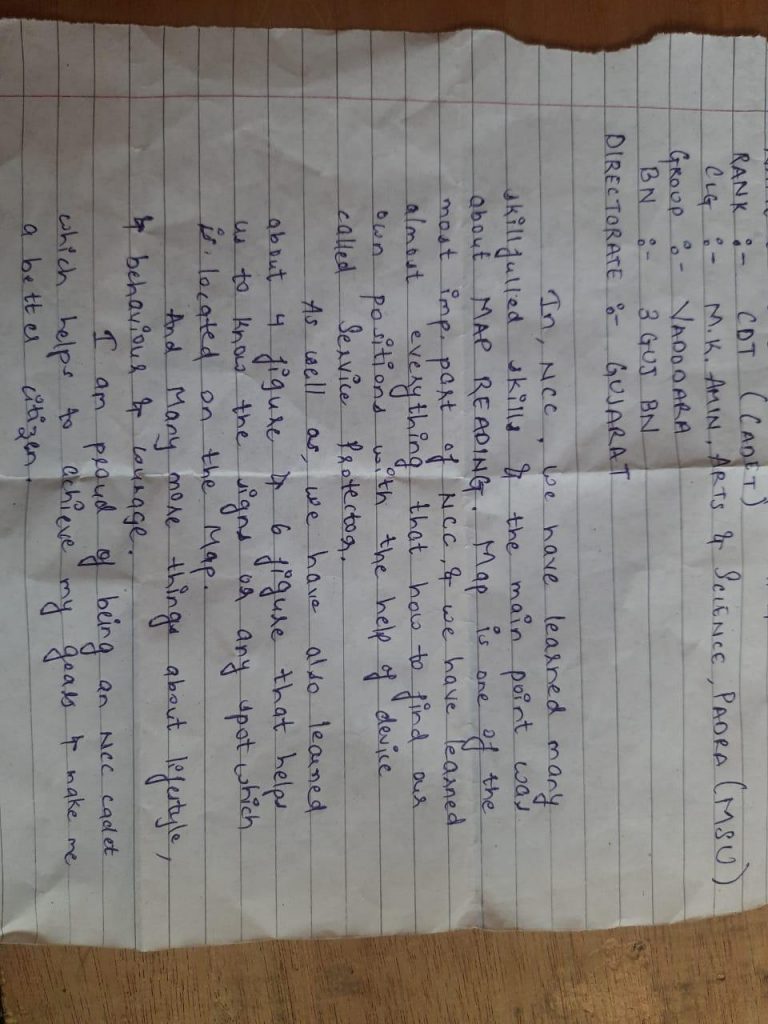 RANK :- CDT (CADET)
CLG :- M.K. AMIN, ARTS & SCIENCE, PADRA (MSU)
GROUP :- VADODARA
BN :- 3 GUJ BN
DIRECTORATE :- GUJARAT
In, NCC, we have learned many
skillfulled skills & the main point was
about MAP READING. Map is one of the
most imp. part of NCC, & we have learned
almost everything that how to find our
own positions with the help of device
called Service Protector.
As well as, we have also learned
about 4 figure & 6 figure that helps
us to know the signs or any spot which
is located on the Map.
And Many more things about lifestyle,
& behaviour & courage.
I am proud of being an NCC cadet
which helps to achieve my goals & make me
a better citizen.